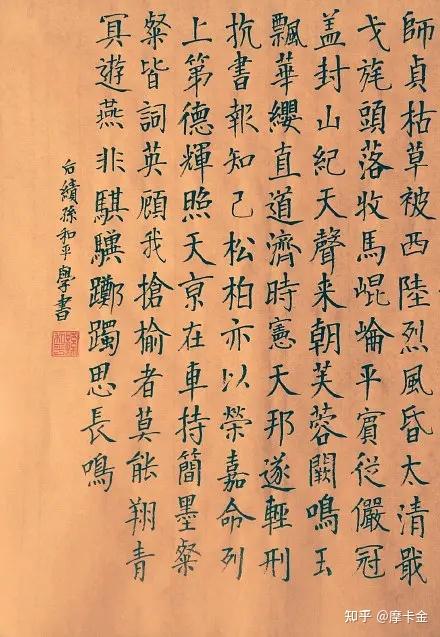 師貞枯草被西陸烈風昏太清戢
戈旄頭落收馬崐崘平賓從儼冠
盖封山紀天聲来朝芙蓉闕鳴玉
飄華纓直道濟時憲天邦遂輕刑
抗書報知己松柏亦以榮嘉命列
上第德輝照天京在車持簡墨粲
粲皆詞英顧我搶榆者莫能翔青
冥遊燕非騏驥躑躅思長鳴
后績孫和平學書
知乎 @摩卡金